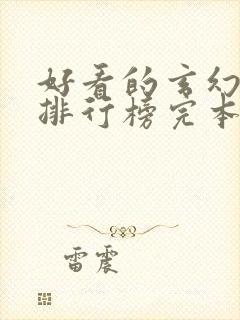 好看的玄幻
排行榜完本
雷震